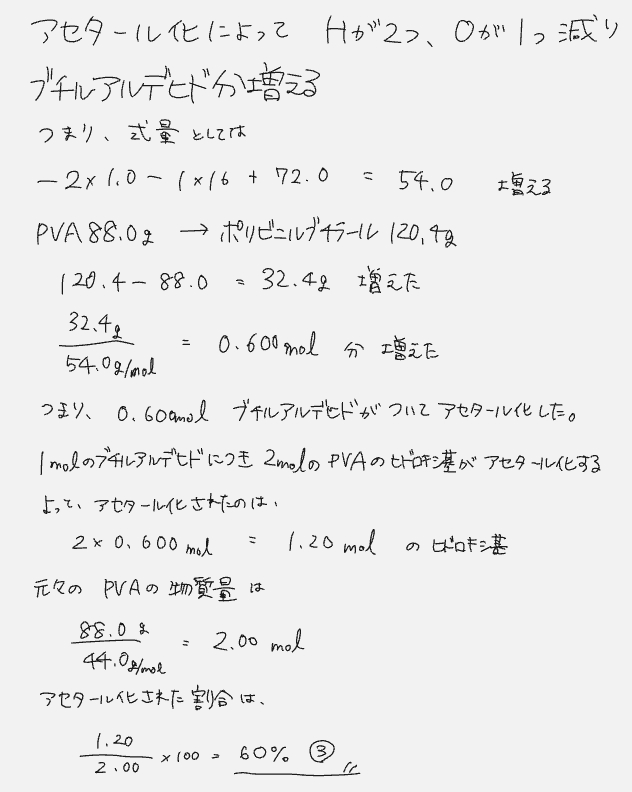 アセタール化によって Hが2つ、Oが1つ減り
ブチルアルデヒド分増える
つまり、式量としては
-2×1.0-1×16+72.0=54.0 増える
PVA88.0g → ポリビニルブチラール120.4g
120.4-88.0=32.4g 増えた
32.4g/54.0g/mol = 0.600mol 分 増えた
つまり、0.600mol ブチルアルデヒドがついてアセタール化した。
1molのブチルアルデヒドにつき 2molのPVAのヒドロキシ基がアセタール化する
よって、アセタール化されたのは、
2×0.600mol = 1.20mol のヒドロキシ基
元々の PVAの物質量は
88.0g/44.0g/mol = 2.00mol
アセタール化された割合は、
1.20/2.00 ×100 = 60% ③